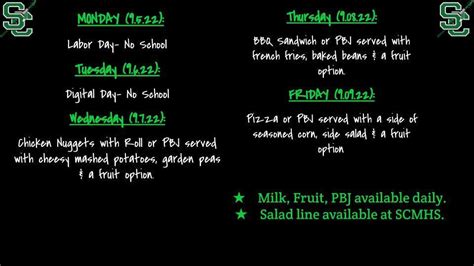 SC
MONDAY (9.5.22):
Labor Day- No School
Tuesday (9.6.22):
Digital Day- No School
Wednesday (9.7.22):
Chicken Nuggets with Roll or PBJ served
with cheesy mashed potatoes, garden peas
& a fruit option.
SC
Thursday (9.08.22):
BBQ Sandwich or PBJ served with
french fries, baked beans & a fruit
option.
FRIDAY (9.09.22):
Pizza or PBJ served with a side of
seasoned corn, side salad & a fruit
option
★ Milk, Fruit, PBJ available daily.
★ Salad line available at SCMHS.